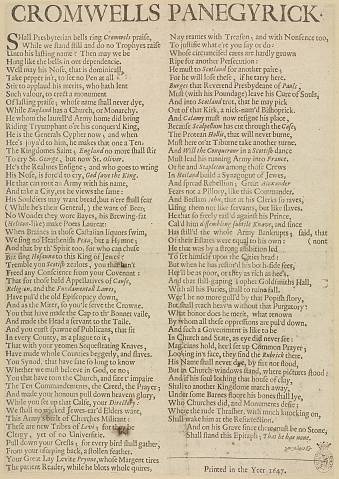 CROMWELLS PANEGYRICK.
SHall Presbyterian bells ring Cromwels praise,
While we stand still and do no Trophyes raise
Unto his lasting name? Then may we be
Hung like the bells in our dependencie.
Well may his Nose, that is dominicall,
Take pepper in't, to see no Pen at all
Stir to applaud his merits, who hath lent
Such valour, to erect a monument
Of lasting praise; whose name shall never dye,
While England has a Church, or Monarchy.
He whom the laurell'd Army home did bring
Riding Triumphant o're his conquer'd King,
He is the Generals Cypher now; and when
Hee's joyn'd to him, he makes that one a Ten.
The Kingdomes Saint; England no more shall stir
To cry St. George, but now St. Oliver.
He's the Realmes Ensigne; and who goes to wring
His Nose, is forc'd to cry, God save the King.
He that can rout an Army with his name,
And take a City, ere he views the same:
His Souldiers may want bread, but n'ere shall fear
(While he's their General) the want of Beer,
No Wonder they wore Bayes, his Brewing-fat
(Helicon-like) make Poets Laureat:
When Brains in those Castalian liquors swim,
We sing no Heathenish Pean, but a Hymne;
And that by th' Spirit too, for who can chuse
But sing Hosanna to this King of Jewes?
Tremble you Scotish zealots, you that han't
Freed any Conscience from your Covenant:
That for those bald Appellatives of Cause,
Religion, and the Fundamental Lawes,
Have pul'd the old Episcopacy down,
And as the Miter, so you'le serve the Crowne.
You that have made the Cap to th' Bonnet vaile,
And made the Head a servant to the Taile.
And you curst spawne of Publicans, that sit
In every County, as a plague to it;
That with your yeomen Sequestrating Knaves,
Have made whole Counties beggerly, and slaves.
You Synod, that have sate so long to know
Whether we must believe in God, or no;
You that have torn the Church, and sate t' impaire
The Ten Commandements, the Creed, the Prayer;
And made your honours pull down heavens glory,
While you set up that Calfe, your Directory:
We shall no wicked Jewes-ear'd Elders want,
This Army's built of Churches Militant:
These are new Tribes of Levi; for they be
Clergy, yet of no Universitie.
Pull down your Crests; for every bird shall gather,
From your usurping back, a stollen feather.
Your Great Lay Levite Prynne, whose Margent tires
The patient Reader, while he blots whole quires,
Nay reames with Treason, and with Nonsence too,
To justifie what e're you say or do:
Whose circumcised eares are hardly grown
Ripe for another Persecution:
He must to Scotland for another paire;
For he will lose these, if he tarry here.
Burges that Reverend Presbydean of Pauls,
Must (with his Poundage) leave his Cure of Souls,
And into Scotland trot, that he may pick
Out of that Kirk, a nick-nam'd Bishoprick.
And Calamy must now resigne his place,
Because Josephus has cut through the Case,
The Protean Saffe, that will never burne,
Must here or in Tiburne take another turne.
And Will the Conquerour in a Scotish dance
Must lead his running Army into France.
Or he and Stapleton among those Crews
In Scotland build a Synagogue of Jewes,
And spread Rebellion; Great Alexander
Fears not a Pillory, like this Commander.
And Bedlam John, that at his Clerks so raves,
Using them not like servants, but like slaves.
He that so freely raild against his Prince,
Call'd him a dissembling subtile Knave, and since
Has stil'd the whole Army Bankrupts; said, that
Of their Estates were equal to his own: (none
He that was by a strong ambition led
To set himself upon the Cities head;
But when he has restor'd his both-side fees,
Hee'll be as poor, or estly as rich as hee's.
And that still-gaping Tophet Goldsmiths Hall,
With all his Furies, shall to ruin fall.
Wee'l be no more gull'd by that Popish story,
But shall reach heaven without that Purgatory:
What honor does he merit, what renown
By whom all these oppressions are pul'd down,
And such a Government is like to be
In Church and State, as eye did never see:
Magicians hold, hee'l set up Common Prayer;
Looking in's face, they find the Rubrick there.
His Name shall never dye, by fire nor flood,
But in Church-windows stand, where pictures stood:
And if his soul loathing that house of clay,
Shall to another Kingdome march away,
Under some Barnes floore his bones shall lye,
Who Churches did, and Monuments defie:
Where the rude Thrasher, with much knocking on,
Shall wake him at the Resurrection.
And on his Grave since there must be no Stone,
Shall stand this Epitaph; That he has none.
Printed in the Yeer 1647.